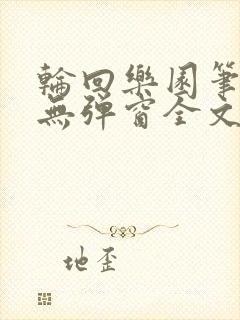 輪回樂園筆
無彈窗全文
地歪